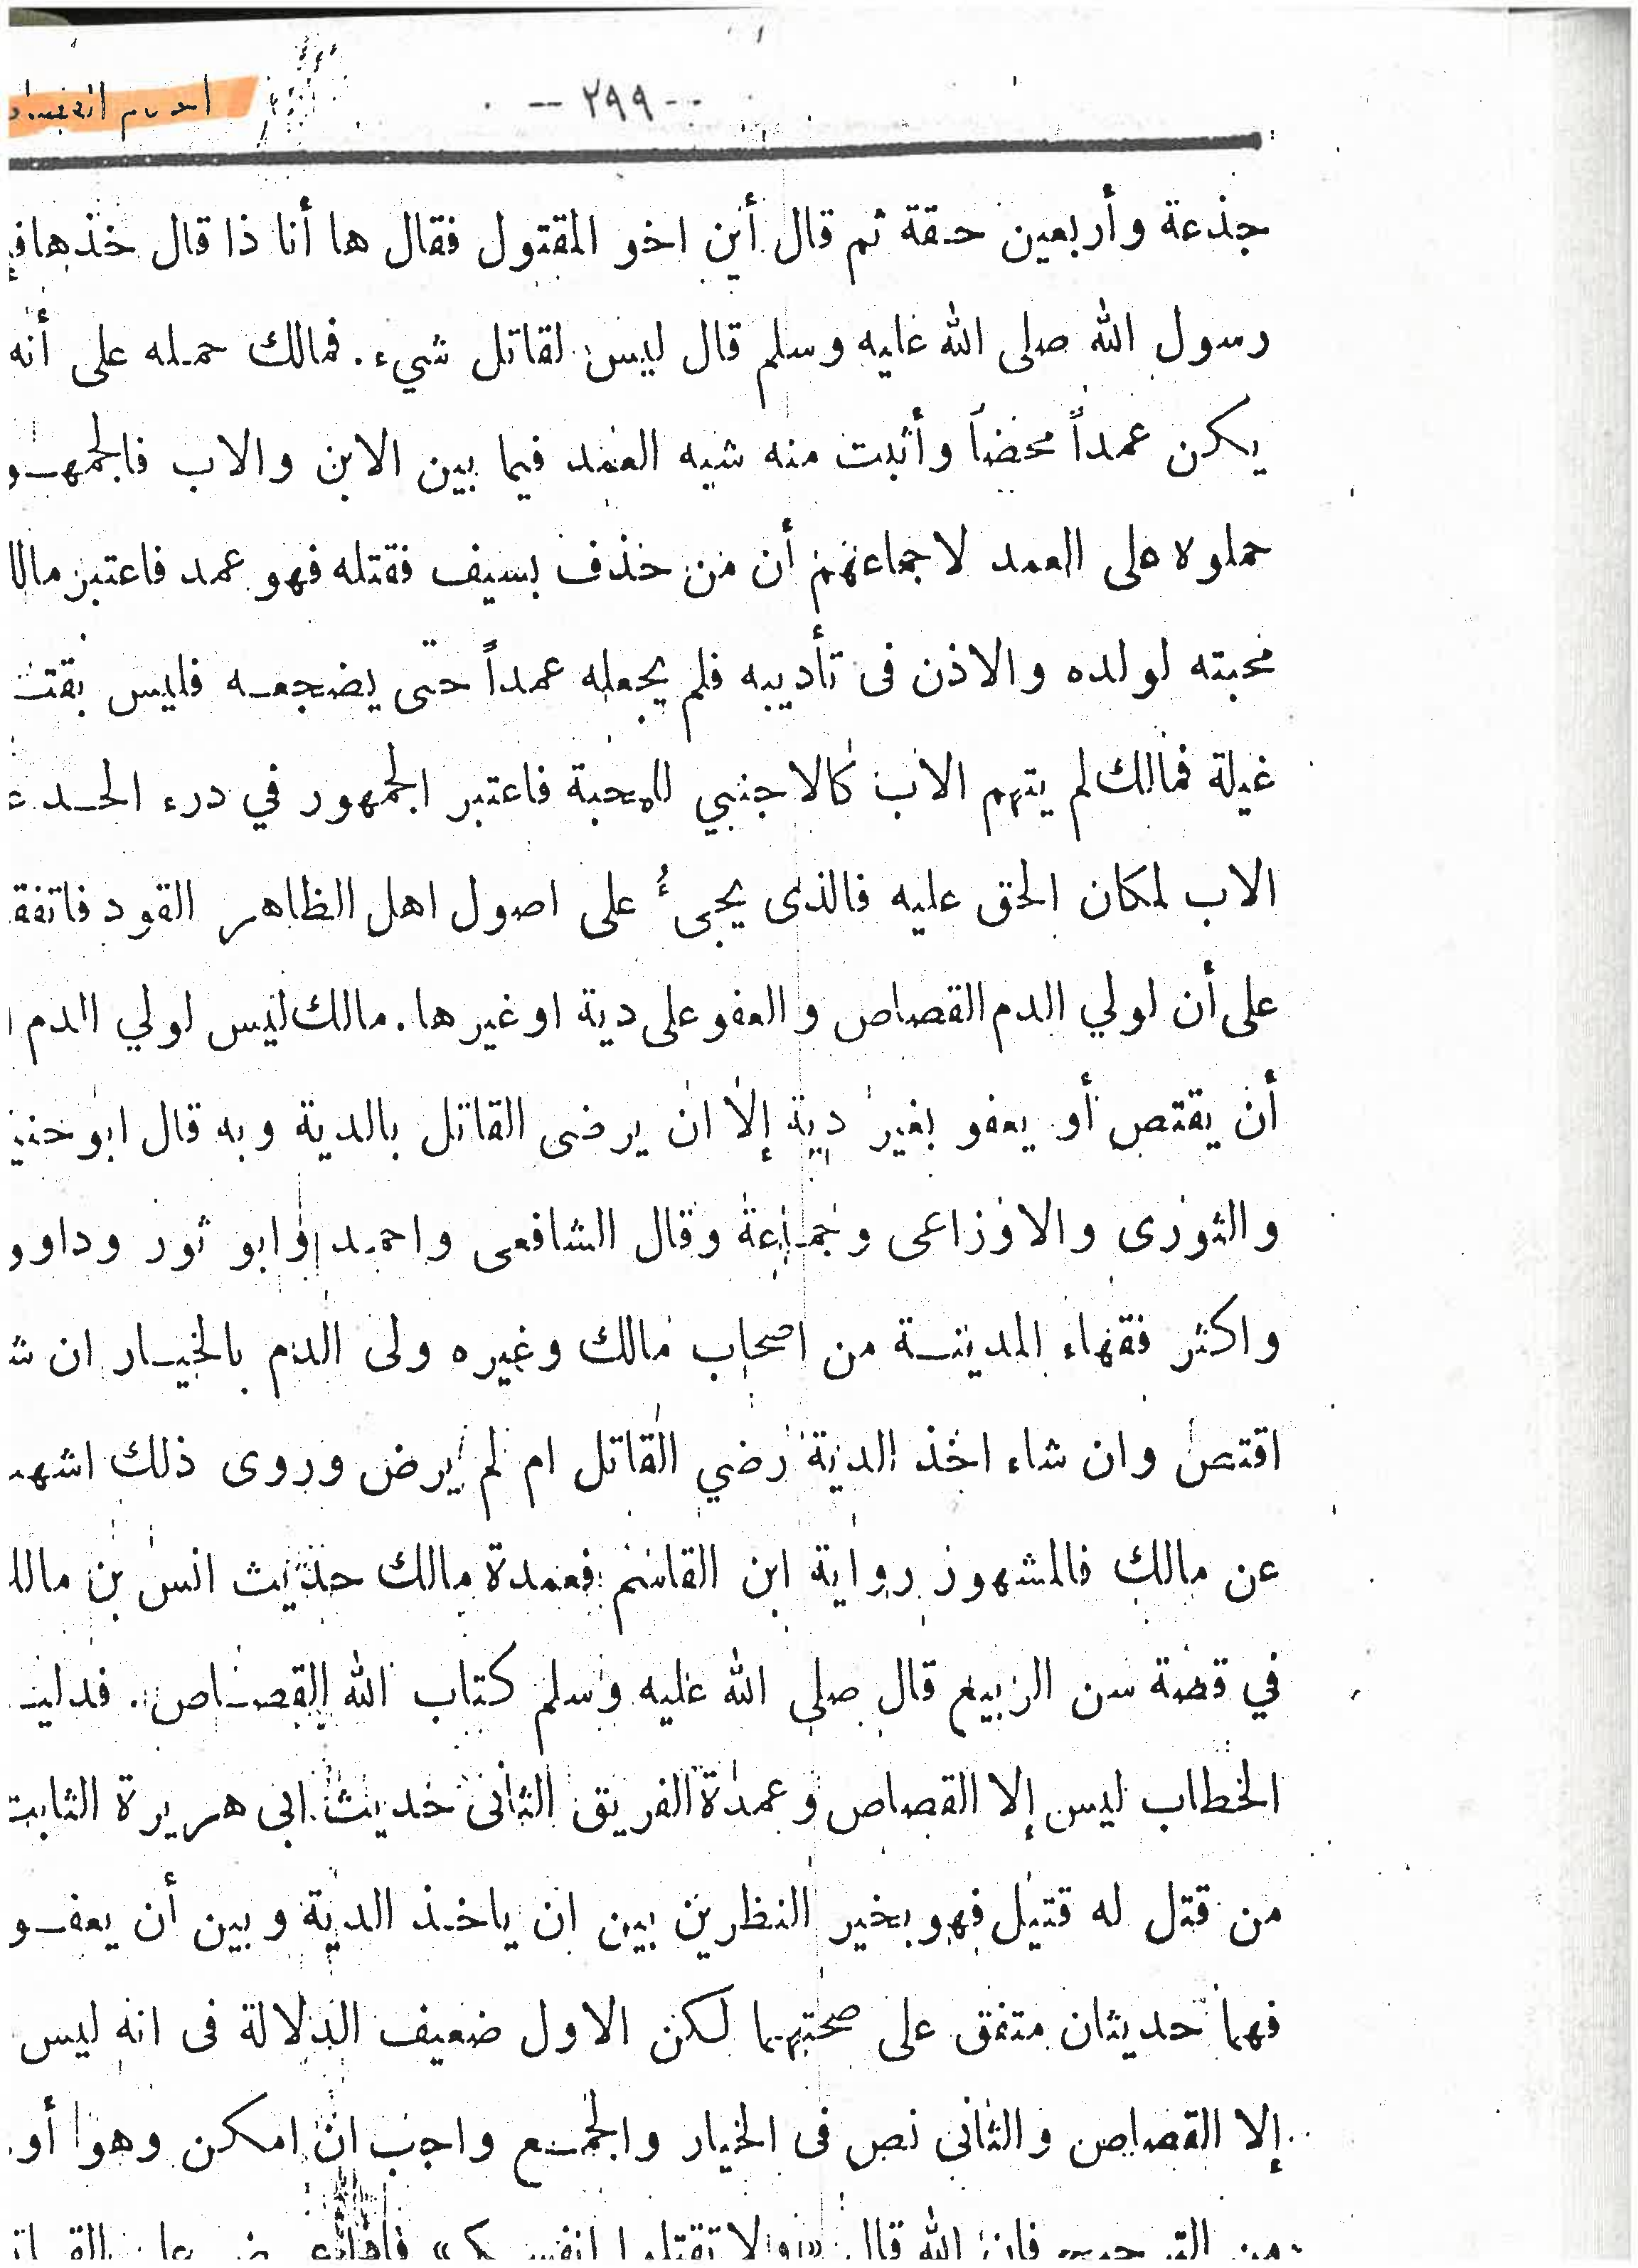 -- ٢٩٩ --
جذعة وأربعين حقة ثم قال أين اخو المقتول فقال ها أنا ذا قال خذها
رسول الله صلى الله عليه وسلم قال ليس لقاتل شيء. فمالك حمله على أنه
يكن عمداً محضاً وأثبت منه شبه العمد فيما بين الابن والاب فالجمهو
حملوه على العمد لاجماعهم أن من خذف بسيف فقتله فهو عمد فاعتبر مالا
محبته لولده والاذن فى تأديبه فلم يجعله عمداً حتى يضجعه فليس بقتـ
غيلة فمالك لم يتهم الاب كالاجنبي للمحبة فاعتبر الجمهور في درء الحد عـ
الاب لمكان الحق عليه فالذى يجىءُ على اصول اهل الظاهر القود فاتفقـ
على أن لولي الدم القصاص والعفو على دية او غيرها. مالك ليس لولي الدم ا
أن يقتص أو يعفو بغير دية إلا ان يرضى القاتل بالدية وبه قال ابو حنيـ
والثورى والاوزاعى وجماعة وقال الشافعى واحمد وابو ثور وداوو
واكثر فقهاء المدينة من اصحاب مالك وغيره ولى الدم بالخيار ان شـ
اقتص وان شاء اخذ الدية رضي القاتل ام لم يرض وروى ذلك اشهـ
عن مالك فالمشهور رواية ابن القاسم فعمدة مالك حديث انس بن مالك
في قصة سن الربيع قال صلى الله عليه وسلم كتاب الله القصاص. فدليـ
الخطاب ليس إلا القصاص وعمدة الفريق الثانى حديث ابى هريرة الثابت
من قتل له قتيل فهو بخير النظرين بين ان ياخذ الدية وبين أن يعفو
فهما حديثان متفق على صحتهما لكن الاول ضعيف الدلالة فى انه ليس
إلا القصاص والثانى نص فى الخيار والجمع واجب ان امكن وهو أو
من الترجيح فان الله قال «ولا تقتلوا انفسكم»